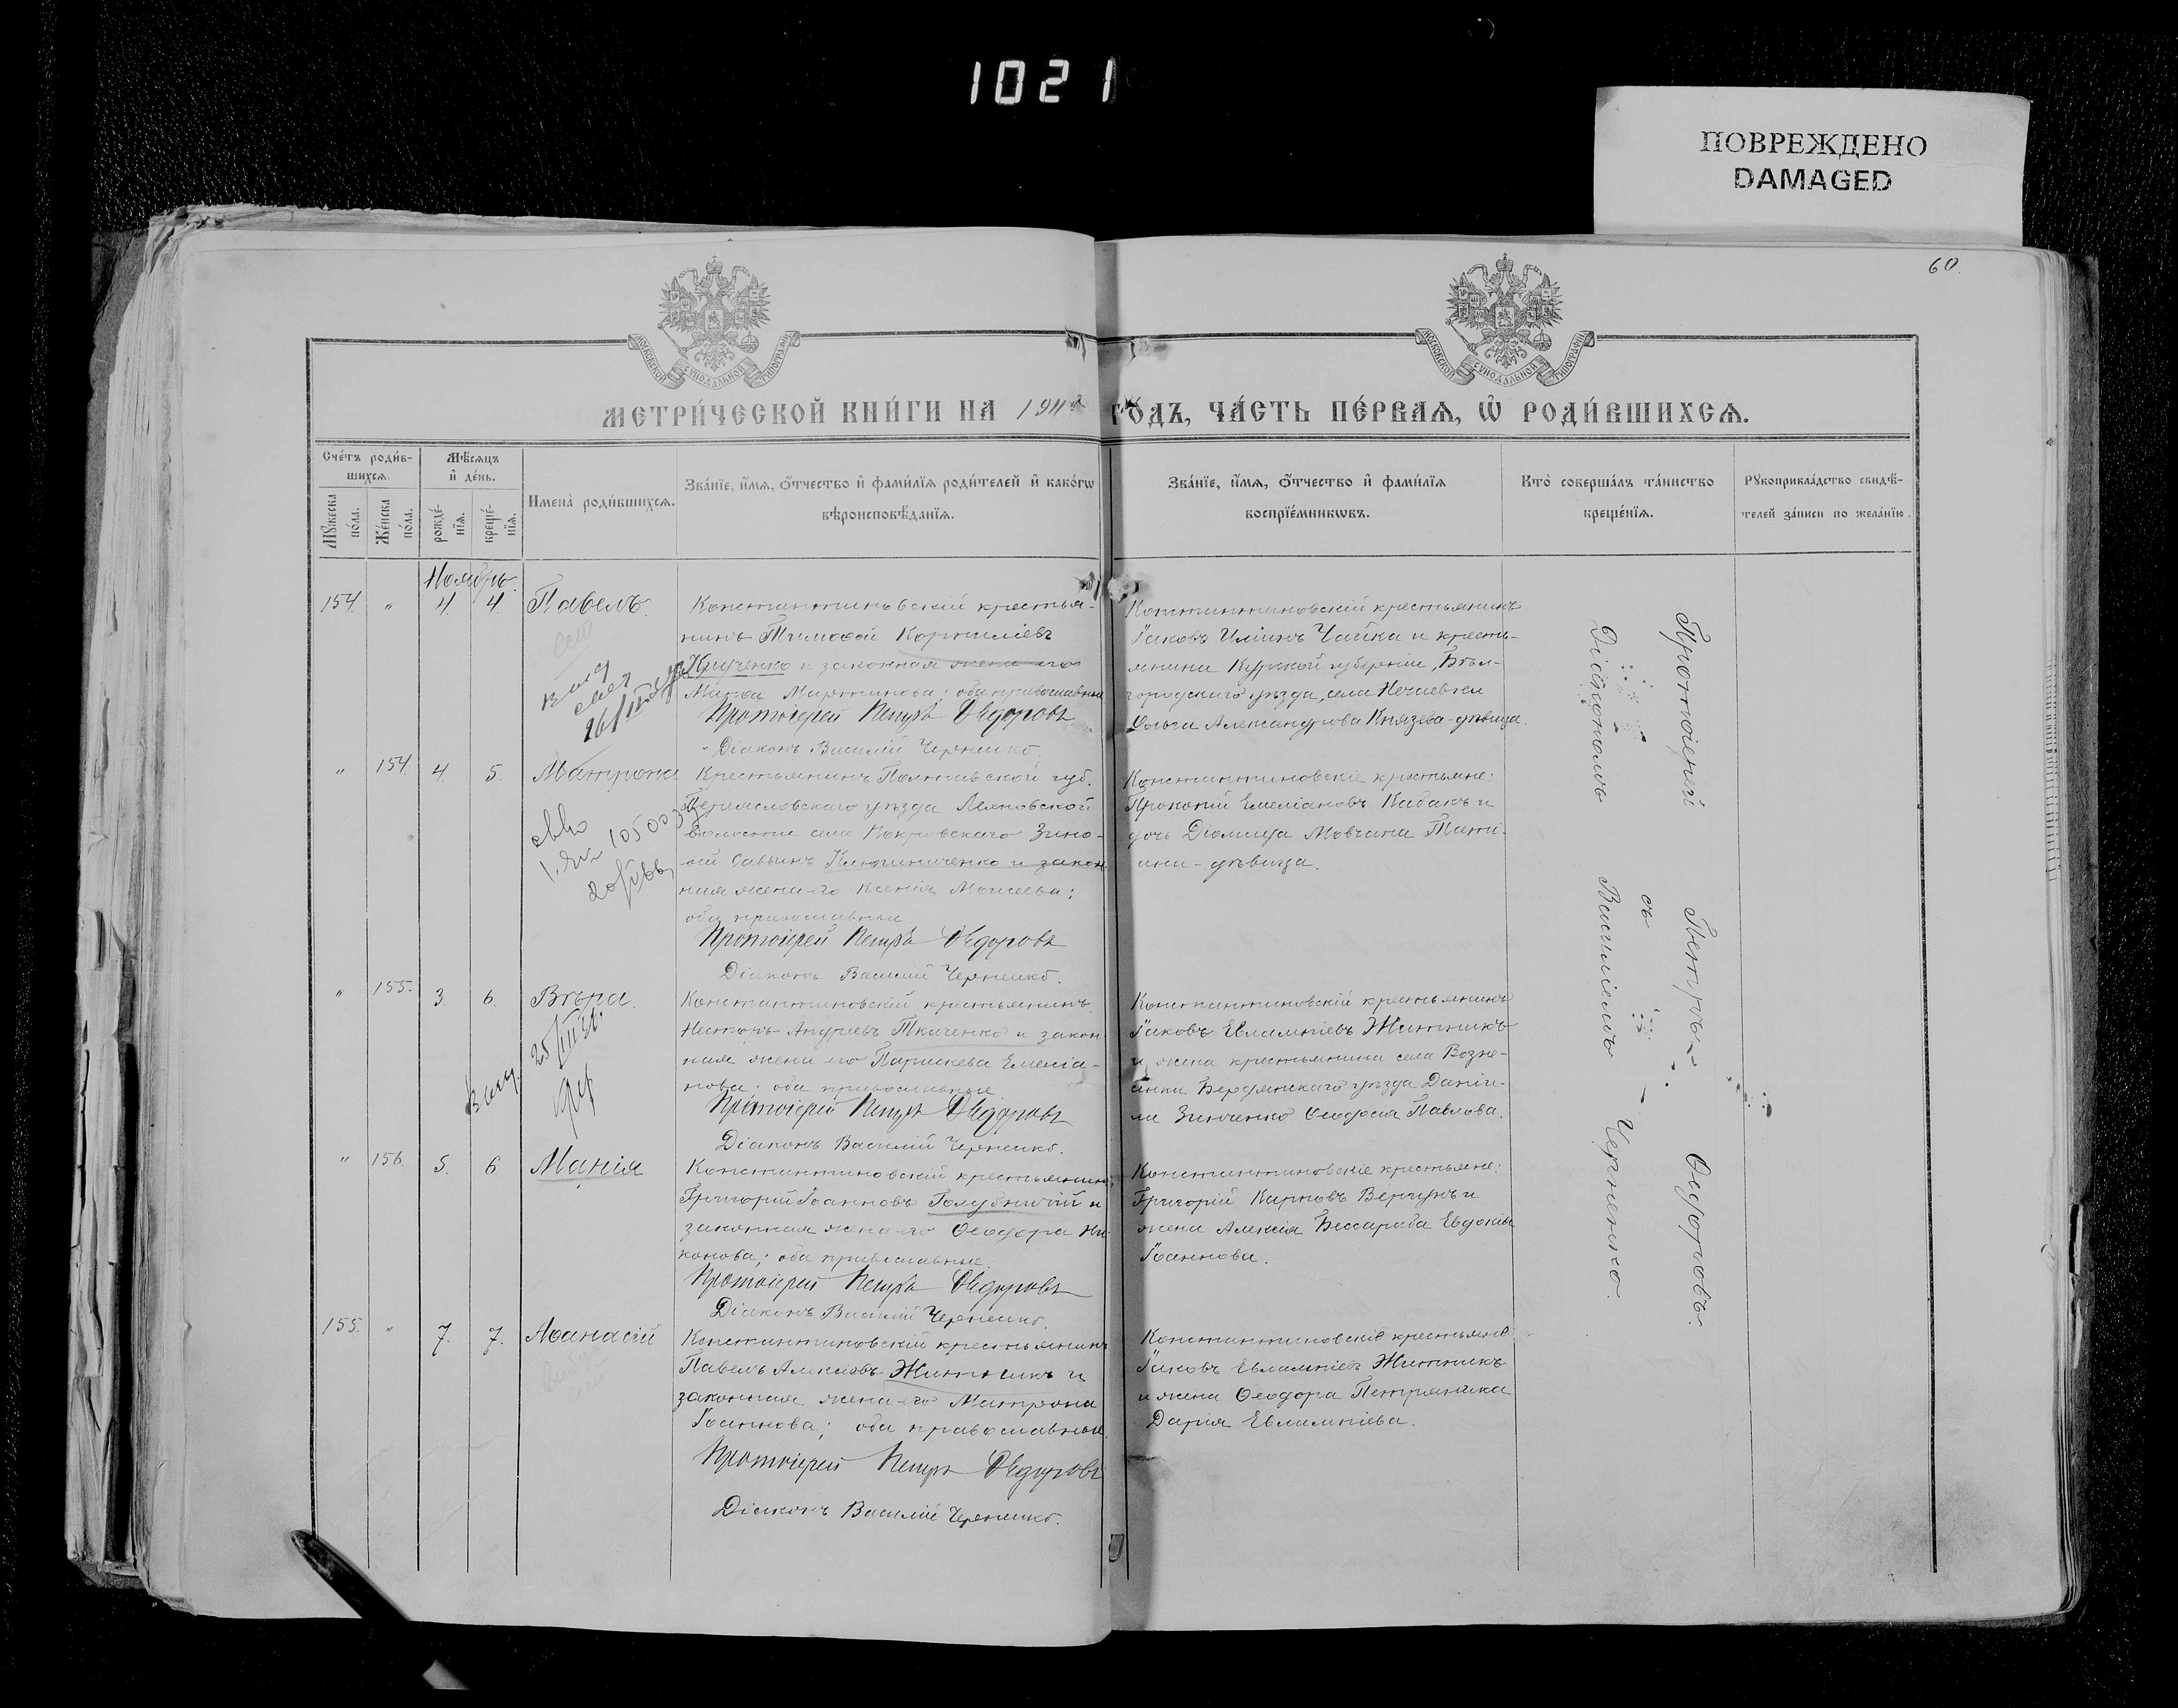 1021
ПОВРЕЖДЕНО
DAMAGED
60.
МОСКОВСКОЙ СѴНОДАЛЬНОЙ ТИПОГРАФІИ
МОСКОВСКОЙ СѴНОДАЛЬНОЙ ТИПОГРАФІИ
МЕТРИ́ЧЕСКОЙ КНИ́ГИ НА 1911й ГО́ДЪ, ЧА́СТЬ ПЕ́РВАѦ, Ѽ РОДИ́ВШИХСѦ.
Сче́тъ роди́в-
шихсѧ.
Мꙋ́жеска по́ла.
Же́нска по́ла.
Мѣ́сѧцъ
и҆ де́нь.
рожде́-
нїѧ.
креще́-
нїѧ.
И҆мена̀ роди́вшихсѧ.
Зва́нїе, и҆́мѧ, ѻ҆́тчество и҆ фами́лїѧ роди́телей и҆ како́гѡ
вѣроисповѣ́данїѧ.
Зва́нїе, и҆́мѧ, ѻ҆́тчество и҆ фами́лїѧ
воспрїе́мникѡвъ.
Кто̀ соверша́лъ та́инство
креще́нїѧ.
Рꙋкоприкла́дство свидѣ́-
телей за́писи по жела́нїю.
Ноябрь.
154. " 4. 4. Павелъ.
Константиновскій крестья-
нинъ Тимоѳей Корниліевъ
Кириченко и законная жена его
Марѳа Мартинова; оба православные
Протоіерей Петръ Ѳедоровъ
Діаконъ Василій Черненко.
Константиновскій крестьянинъ
Іаковъ Иліинъ Чайка и кресть-
янина Курской губерніи, Бѣл-
городскаго уѣзда, села Нечаевки
Ольга Александрова Князева-дѣвица.
" 154. 4. 5. Матрона
Крестьянинъ Полтавской губ.
Переясловскаго уѣзда Леляковской
волости села Покровскаго Зино-
вій Саввинъ и закон
ная жена его Ксенія Моисеева;
оба православные
Протоіерей Петръ Ѳедоровъ
Діаконъ Василій Черненко.
Константиновскіе крестьяне:
Прокопій Емеліановъ Кабакъ и
дочь Діомида Мовчана Тати-
ана - дѣвица.
" 155. 3. 6. Вѣра.
Константиновскій крестьянинъ
Несторъ Андреевъ Ткаченко и закон
ная жена его Параскева Емеліа-
нова; оба православные
Протоіерей Петръ Ѳедоровъ
Діаконъ Василій Черненко.
Константиновскій крестьянинъ
Іаковъ Евлампіевъ Житникъ
и жена крестьянина села Возне-
сенки Бердянскаго уѣзда Даніи-
ла Зинченко Ѳеодосія Павлова.
" 156. 5. 6 Марія
Константиновскій крестьянинъ
Григорій Іоанновъ Голубничій и
законная жена его Ѳеодора Ни-
конова; оба православные.
Протоіерей Петръ Ѳедоровъ
Діаконъ Василій Черненко.
Константиновскіе крестьяне:
Григорій Карповъ Вергунъ и
жена Алексія Бессараба Евдокія
Іоаннова.
155. " 7. 7. Аѳанасій
Константиновскій крестьянинъ
Павелъ Алексіевъ Житникъ и
законная жена его Матрона
Іоаннова; оба православные.
Протоіерей Петръ Ѳедоровъ
Діаконъ Василій Черненко.
Константиновскіе крестьяне
Іаковъ Евлампіевъ Житникъ
и жена Ѳеодора Петряника
Дарія Евлампіева.
Протоіерей Петръ Ѳедоровъ
съ
Діакономъ Василіемъ Черненко.